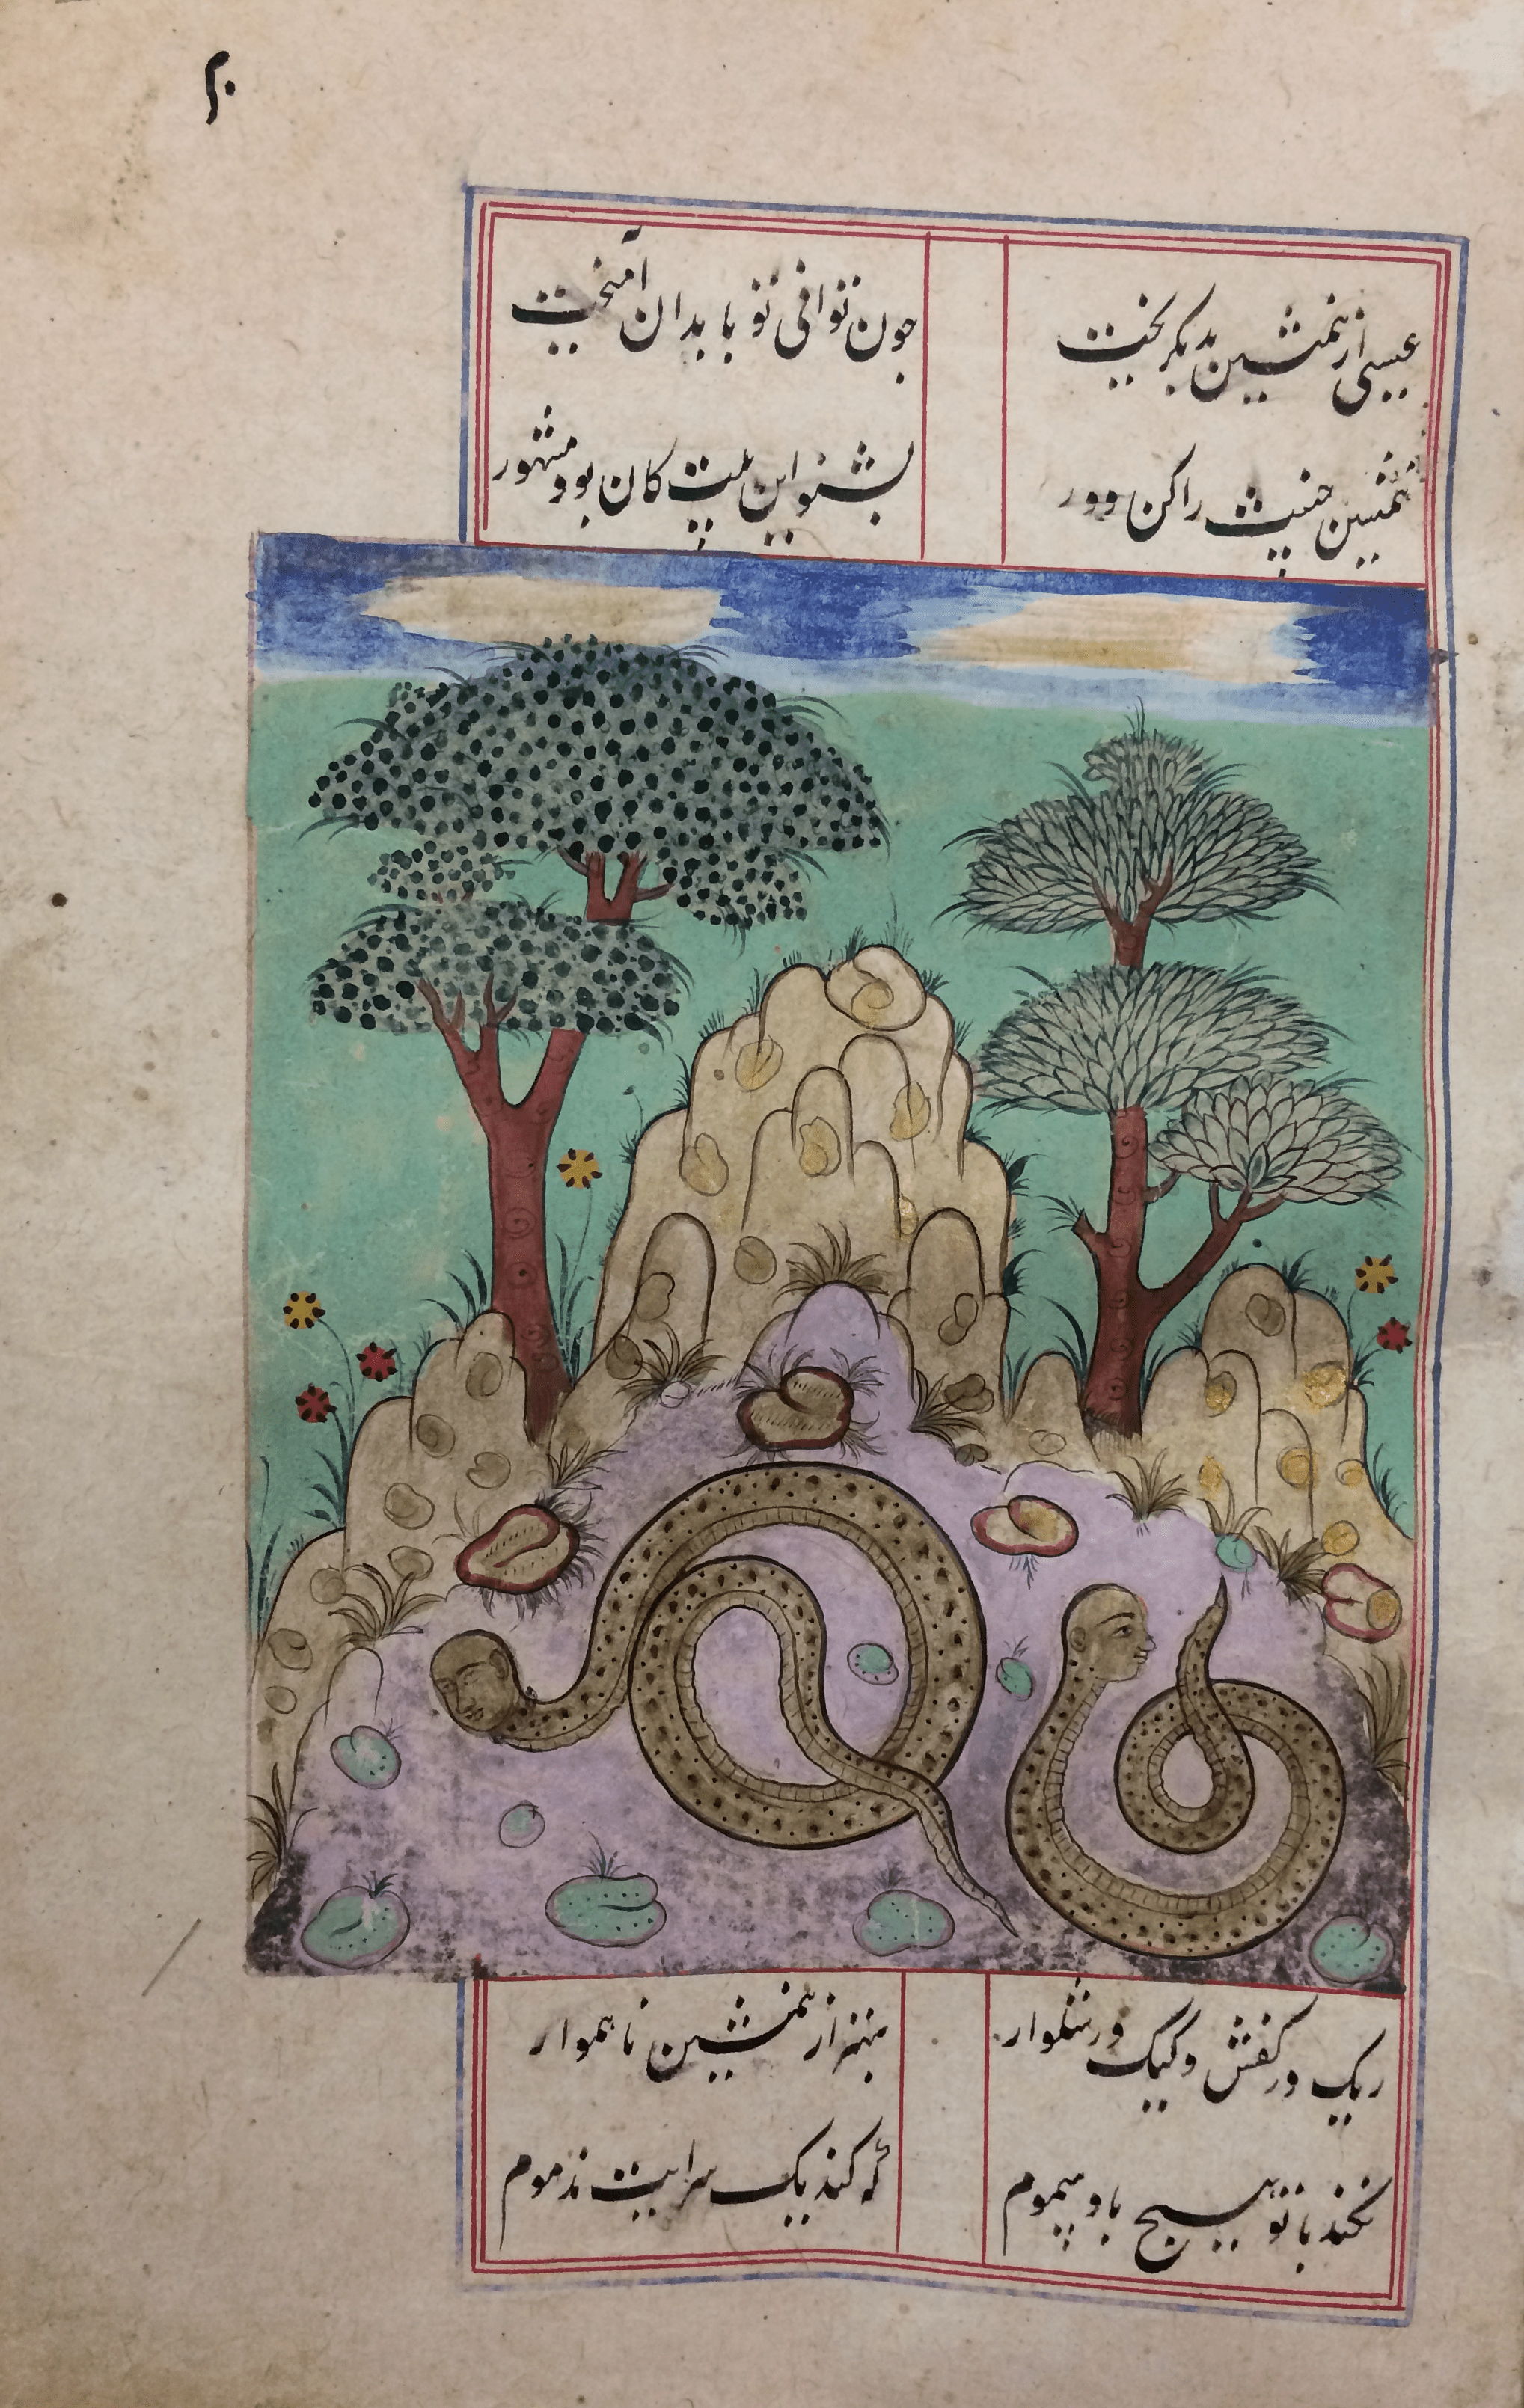 م.
عیسی از همنشین بد بگریخت
چون توانی تو با بدان آمیخت
همنشین خبیث را کن دور
بشنو این بیت کان بود مشهور
ریک در کفش و کیک در شلوار
بهتر از همنشین ناهموار
نکند با تو هیچ باد سموم
که کند یک سرایت مذموم